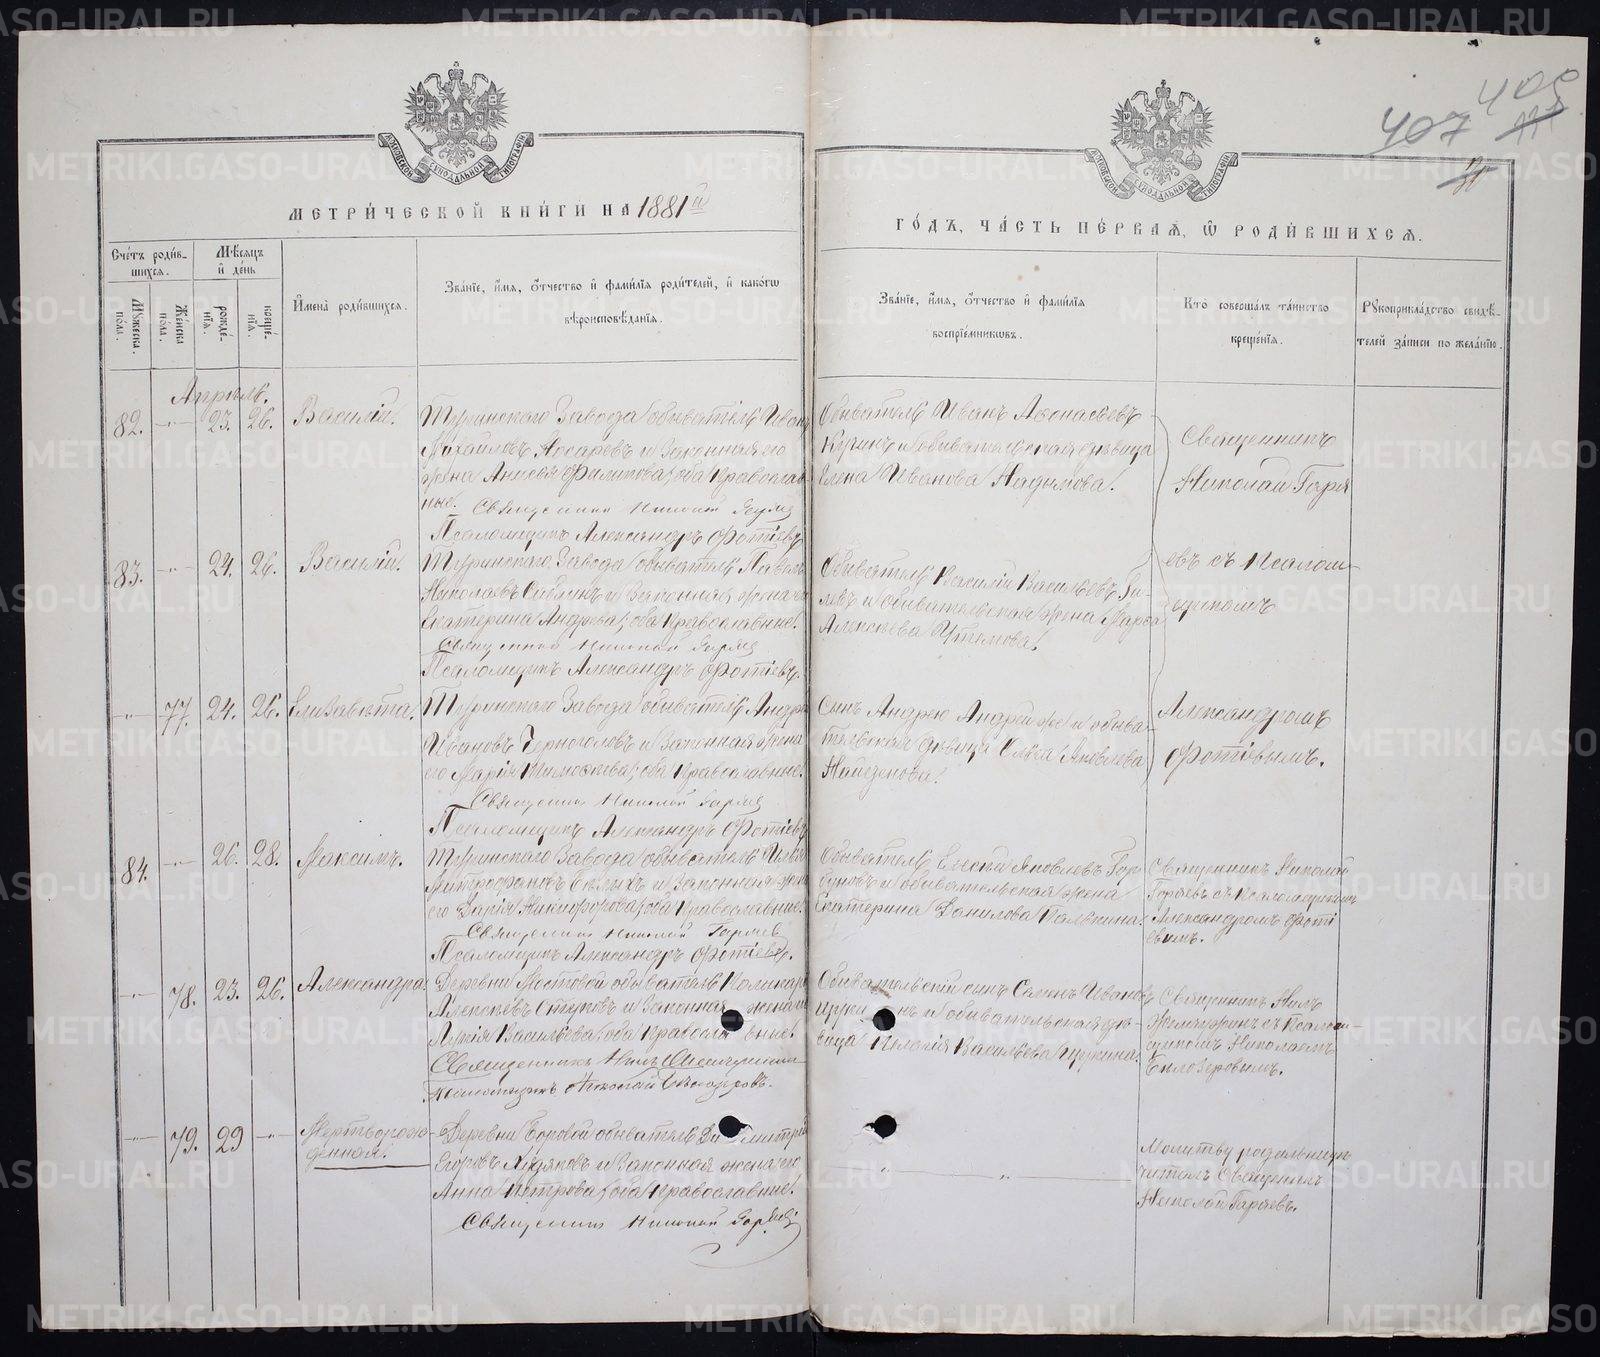 407
МЕТРИ́ЧЕСКОЙ КНИ́ГИ НА 1881й
ГО́ДЪ, ЧА́СТЬ ПЕ́РВАЯ, Ѿ РОДИ́ВШИХСЯ.
Сче́тъ роди́в-
шихся.
Мѣ́сяцъ
и́ де́нь
Мꙋжеска по́ла.
Же́нска по́ла.
рожде́-
нїя.
креще́-
нїя.
И҆мена̀ роди́вшихся.
Зва́нїе, и́мя, о́тчество и́ фами́лїя роди́телей, и́ како́гѡ
вѣроисповѣ́данїя.
Зва́нїе, и́мя, о́тчество и́ фами́лїя
воспрїе́мникωвъ.
Кто̀ соверша́лъ та́инство
креще́нїя.
Рꙋкоприкла́дство свидѣ́-
телей за́писи по жела́нїю.
Апрѣль.
82. —„— 23. 26. Василій.
Туринскаго Завода обыватель Иванъ
Михайловъ Носаревъ и законная его
жена Анисья Филипова; оба православ-
ные.
Священникъ Николай Горяев
Псаломщикъ Александръ Фотіевъ
Обыватель Иванъ Афонасьевъ
и обывательская дѣвица
Елена Иванова
Священникъ
Николай Горя
евъ съ Псалом-
щикомъ
Александромъ
Фотіевымъ.
83. —„— 24. 26. Василій.
Туринскаго Завода обыватель Павелъ
Николаевъ и законная жена его
Екатерина Андреева; оба православные.
Священникъ Николай Горяев
Псаломщикъ Александръ Фотіевъ.
Обыватель Василій Васильевъ
и обывательская жена Марфа
Алексѣева Устинова.
—„— 77. 24. 26. Елизавѣта.
Туринскаго Завода обыватель Андрей
Ивановъ Черноголовъ и законная жена
его Марія Тимофеева; оба православные.
Священникъ Николай Горяев
Псаломщикъ Александръ Фотіевъ
Сынъ Андрею Андрей же и обыва-
тельская дѣвица Ольга Яковлева
Найденова.
84. —„— 26. 28. Максимъ.
Туринскаго Завода обыватель
Митрофановъ Бѣлыхъ и законная жена
его Дарія Никифорова; оба православные.
Священникъ Николай Горяев
Псаломщикъ Александръ Фотіевъ.
Обыватель Яковлевъ Гор-
буновъ и обывательская жена
Екатерина Данилова Палькина.
Священникъ Николай
Горяевъ съ Псаломщикомъ
Александромъ Фоті
евымъ.
—„— 78. 23. 26. Александра.
Деревни Мостовой обыватель Поликарпъ
Алексѣевъ и законная жена его
Васильева; оба православные.
Священникъ Нилъ
Псаломщикъ Николай Бѣлозеровъ.
Обывательскій сынъ Семенъ Ивановъ
и обывательская дѣ-
вица Пелагія Васильева
Священникъ Нилъ
съ Псалом-
щикомъ Николаемъ
Бѣлозеровымъ.
—„— 79. 29 —„— Мертворож-
денная.
Деревни Боровой обыватель Димитрій
Егоровъ Худяковъ и законная жена его
Анна Петрова; оба православные.
Священникъ Николай Горяевъ
—„— —„—
Молитву родильницѣ
читалъ Священникъ
Николай Горяевъ.
METRIKI.GASO-URAL.RU